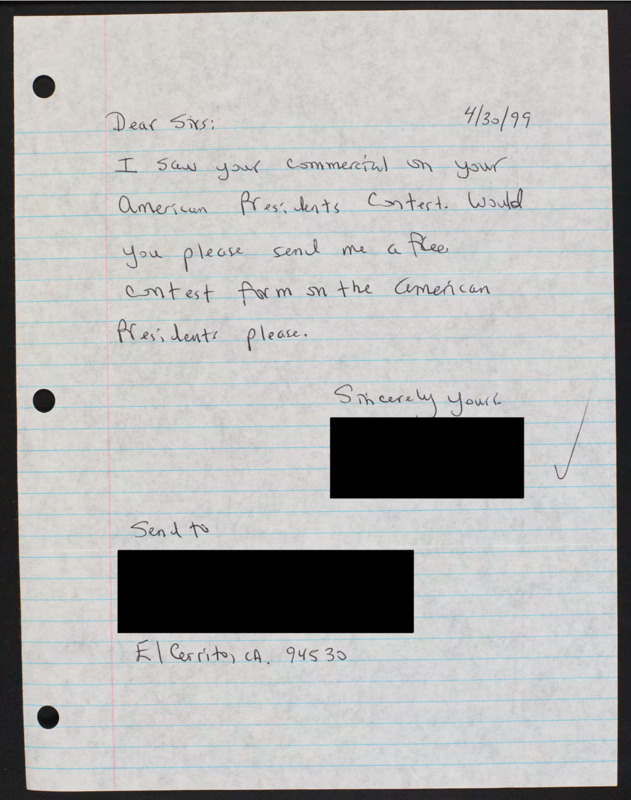 4/30/99
Dear Sirs:
I saw your commercial on your
American Presidents Contest. Would
you please send me a free
contest form on the American
Presidents please.
Sincerely yours
Send to
El Cerrito, CA. 94530